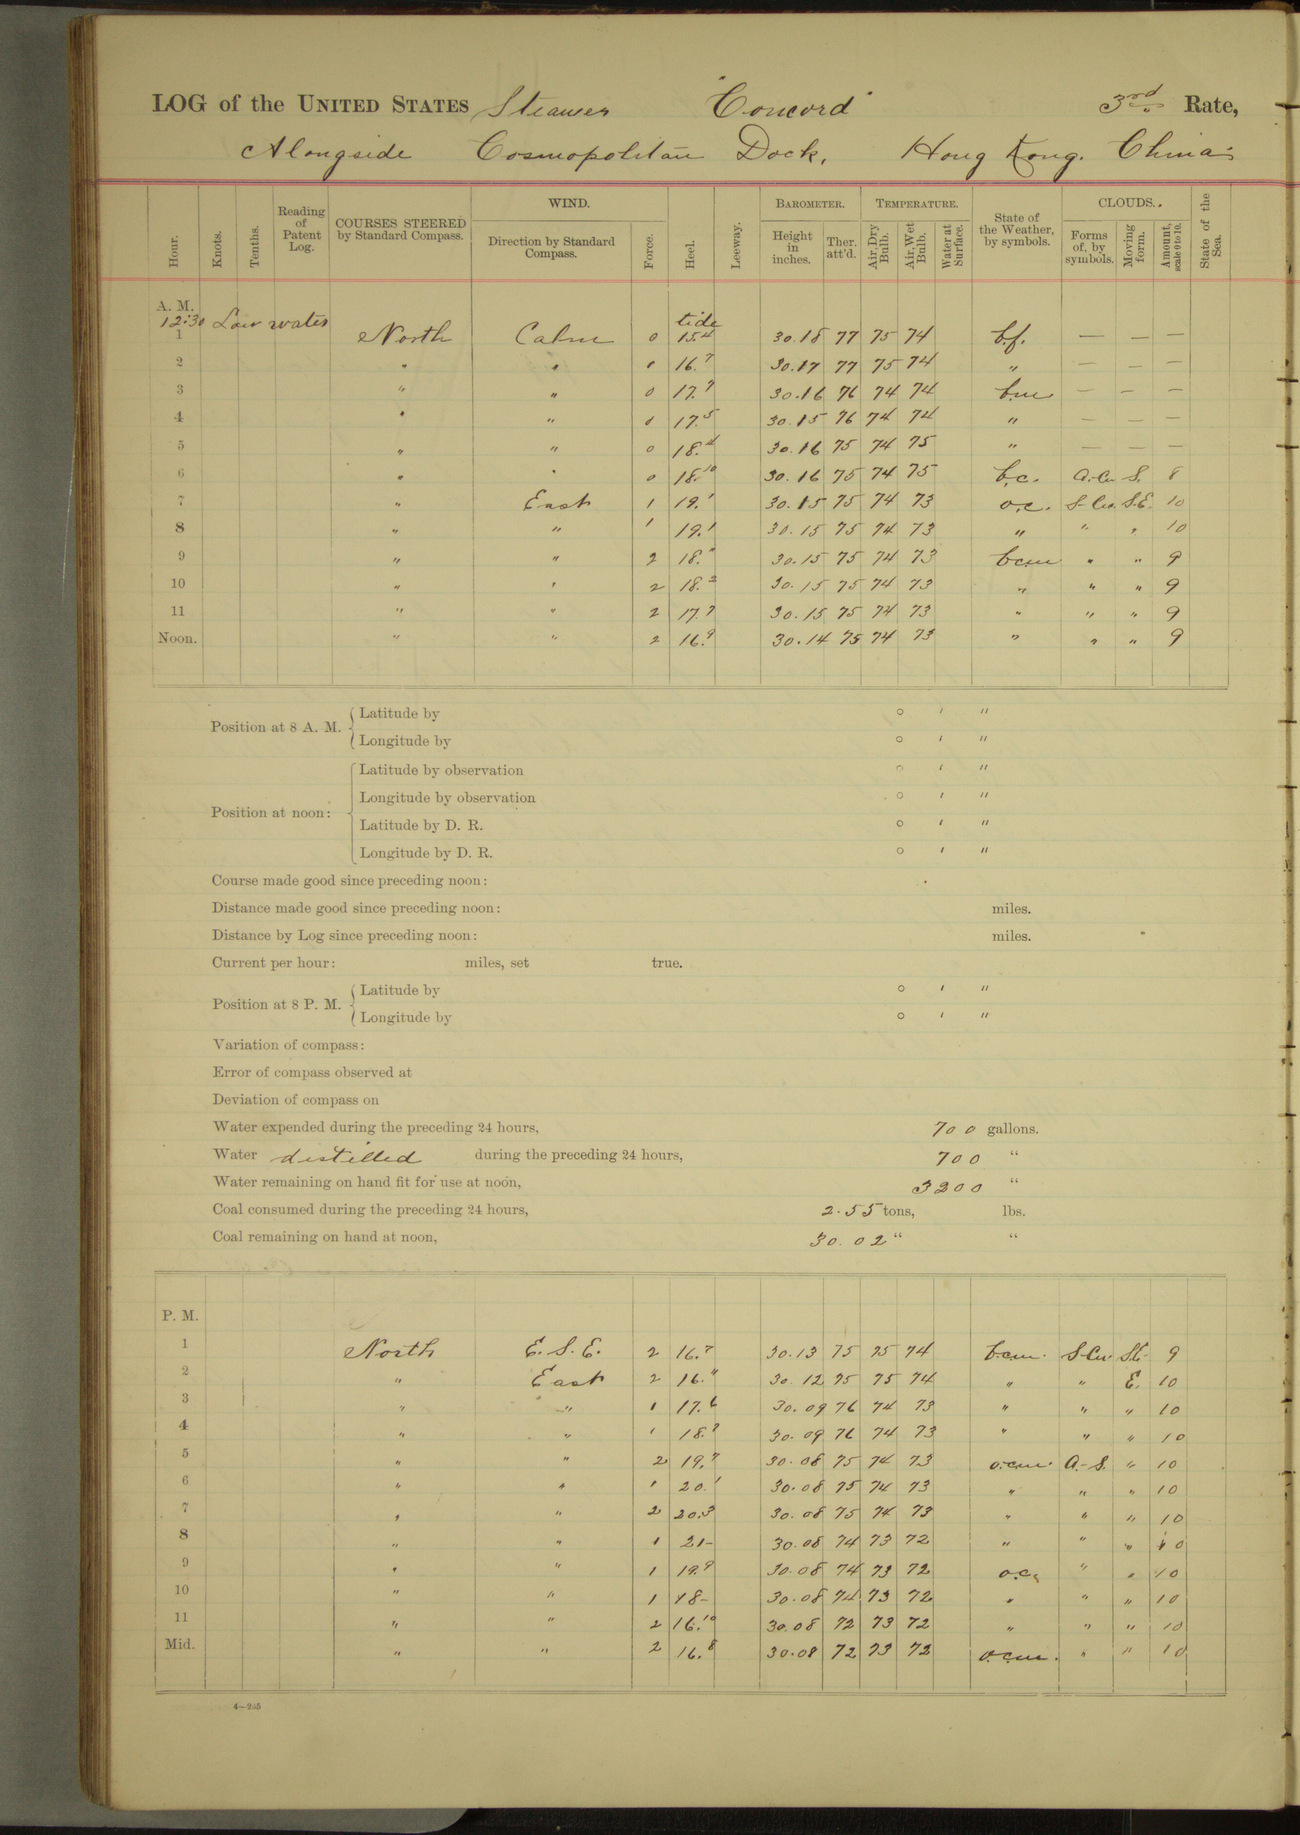 LOG of the UNITED STATES Steamer "Concord" 3rd Rate,
Alongside Cosmopolitan Dock, Hong Kong. China.
Hour. Knots. Tenths. Reading of Patent Log. COURSES STEERED by Standard Compass. WIND. Direction by Standard Compass. Force. Heel. Leeway. BAROMETER. Height in inches. Ther. att'd. TEMPERATURE. Air, Dry Bulb. Air, Wet Bulb. Water at Surface. State of the Weather, by symbols. CLOUDS. Forms of, by symbols. Moving form. Amount, scale 0 to 10. State of the Sea.
A. M.
12:30 Low water tide
1 North Calm 0 15.4 30.18 77 75 74 b.f. — — —
2 " " 0 16.7 30.17 77 75 74 " — — —
3 " " 0 17.7 30.16 76 74 74 b.m — — —
4 " " 0 17.5 30.15 76 74 74 " — — —
5 " " 0 18.4 30.16 75 74 75 " — — —
6 " " 0 18.10 30.16 75 74 75 b.c. A.-Cu. S. 8
7 " East 1 19.1 30.15 75 74 73 o.c. S-Cu. S.E. 10
8 " " 1 19.1 30.15 75 74 73 " " " 10
9 " " 2 18." 30.15 75 74 73 bcm " " 9
10 " " 2 18.2 30.15 75 74 73 " " " 9
11 " " 2 17.7 30.15 75 74 73 " " " 9
Noon. " " 2 16.9 30.14 75 74 73 " " " 9
Position at 8 A. M. Latitude by ° ′ ″
Longitude by ° ′ ″
Position at noon: Latitude by observation ° ′ ″
Longitude by observation ° ′ ″
Latitude by D. R. ° ′ ″
Longitude by D. R. ° ′ ″
Course made good since preceding noon:
Distance made good since preceding noon: miles.
Distance by Log since preceding noon: miles.
Current per hour: miles, set true.
Position at 8 P. M. Latitude by ° ′ ″
Longitude by ° ′ ″
Variation of compass:
Error of compass observed at
Deviation of compass on
Water expended during the preceding 24 hours, 700 gallons.
Water distilled during the preceding 24 hours, 700 "
Water remaining on hand fit for use at noon, 3200 "
Coal consumed during the preceding 24 hours, 2.55 tons, lbs.
Coal remaining on hand at noon, 30.02 " "
P. M.
1 North E. S. E. 2 16.7 30.13 75 75 74 bcm. S-Cu. S.E. 9
2 " East 2 16." 30.12 75 75 74 " " E. 10
3 " " 1 17.6 30.09 76 74 73 " " " 10
4 " " 1 18.7 30.09 76 74 73 " " " 10
5 " " 2 19.7 30.08 75 74 73 o.cm. A.-S. " 10
6 " " 1 20.1 30.08 75 74 73 " " " 10
7 " " 2 20.3 30.08 75 74 73 " " " 10
8 " " 1 21- 30.08 74 73 72 " " " 10
9 " " 1 19.9 30.08 74 73 72 o.c. " " 10
10 " " 1 18- 30.08 74 73 72 " " " 10
11 " " 2 16.10 30.08 72 73 72 " " " 10
Mid. " " 2 16.8 30.08 72 73 72 o.cm. " " 10
4—205